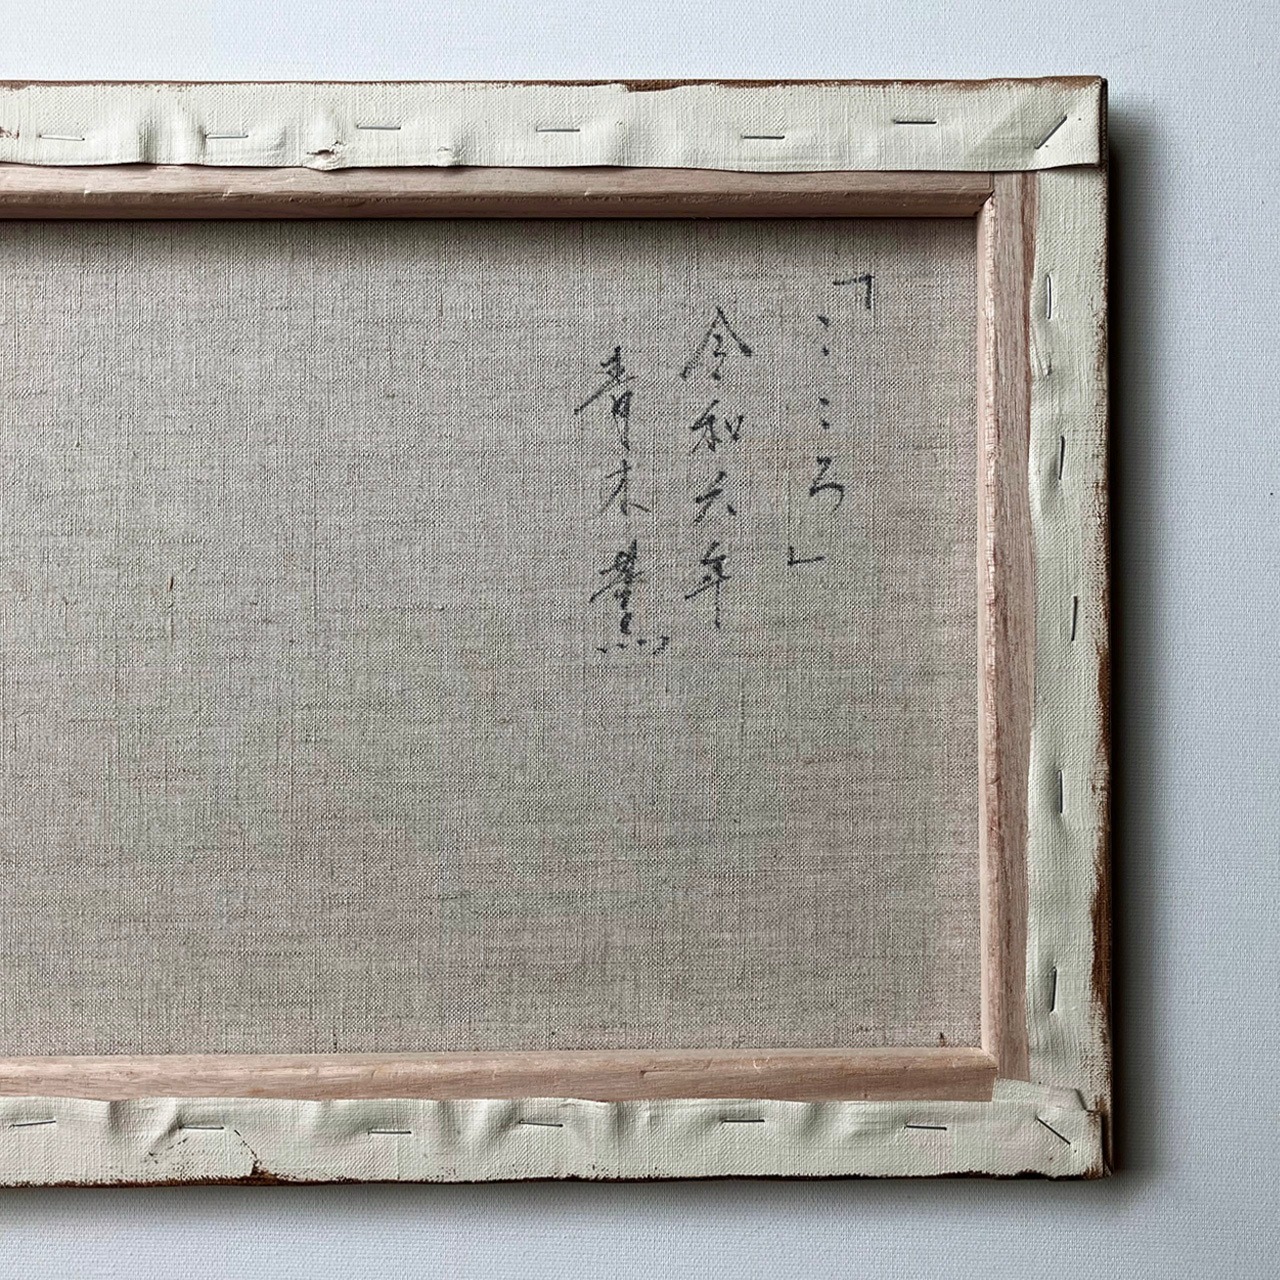 「こころ」
令和六年
青木薫